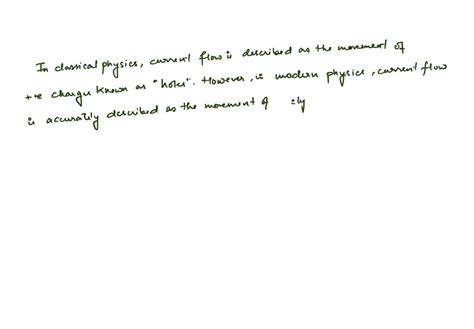 In classical physics, current flow is described as the movement of
+ve charges known as "holes". However, in modern physics, current flow
is accurately described as the movement of